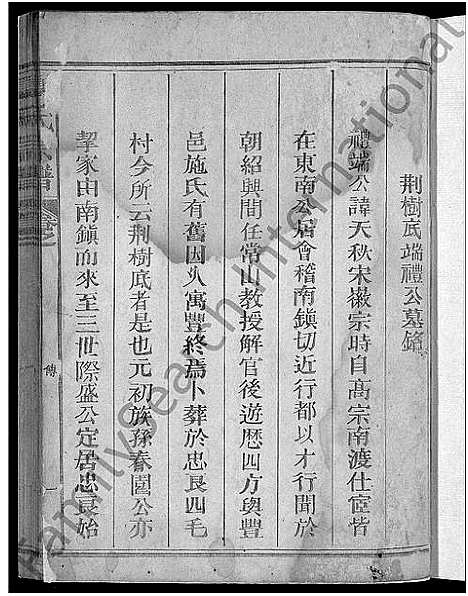 荆樹底端禮公墓銘
禮端公諱天秋宋徽宗時自高宗南渡仕宦皆
在東南公居會稽南鎮切近行都以才行聞於
朝紹興間任常山教授解官後遊歴四方與豐
邑施氏有舊因久寓豐終焉卜葬於忠良四毛
村今所云荆樹底者是也元初族孫春園公亦
挈家由南鎮而來至三世際盛公定居忠良始
氏 譜
傳
一
FamilySearch International